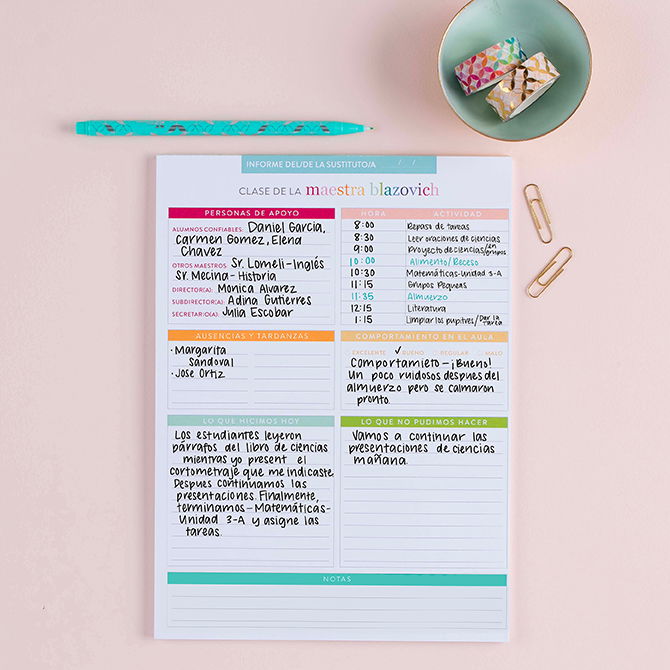 INFORME DEL/DE LA SUSTITUTO/A __/__/__
CLASE DE LA maestra blazovich
PERSONAS DE APOYO
ALUMNOS CONFIABLES: Daniel Garcia,
Carmen Gomez, Elena
Chavez
OTROS MAESTROS: Sr. Lomeli-Inglés
Sr. Mecina-Historia
DIRECTOR(A): Monica Alvarez
SUBDIRECTOR(A): Adina Gutierres
SECRETARIO(A): Julia Escobar
HORA ACTIVIDAD
8:00 Repaso de tareas
8:30 Leer oraciones de ciencias
9:00 Proyecto de ciencias/en grupos
10:00 Alimento/Receso
10:30 Matemáticas-unidad 3-A
11:15 Grupos Pequeas
11:35 Almuerzo
12:15 Literatura
1:15 Limpiar los pupitres/Dar la tarea
AUSENCIAS Y TARDANZAS
·Margarita
Sandoval
·Jose Ortiz
COMPORTAMIENTO EN EL AULA
EXCELENTE ✓ BUENO REGULAR MALO
Comportamieto-¡Bueno!
Un poco ruidosos despues del
almuerzo pero se calmaron
pronto.
LO QUE HICIMOS HOY
Los estudiantes leyeron
párrafos del libro de ciencias
mientras yo present el
cortometraje que me indicaste.
Despues continuamos las
presentaciones. Finalmente,
terminamos-Matemáticas-
Unidad 3-A y asigne las
tareas.
LO QUE NO PUDIMOS HACER
Vamos a continuar las
presentaciones de ciencias
mañana.
NOTAS